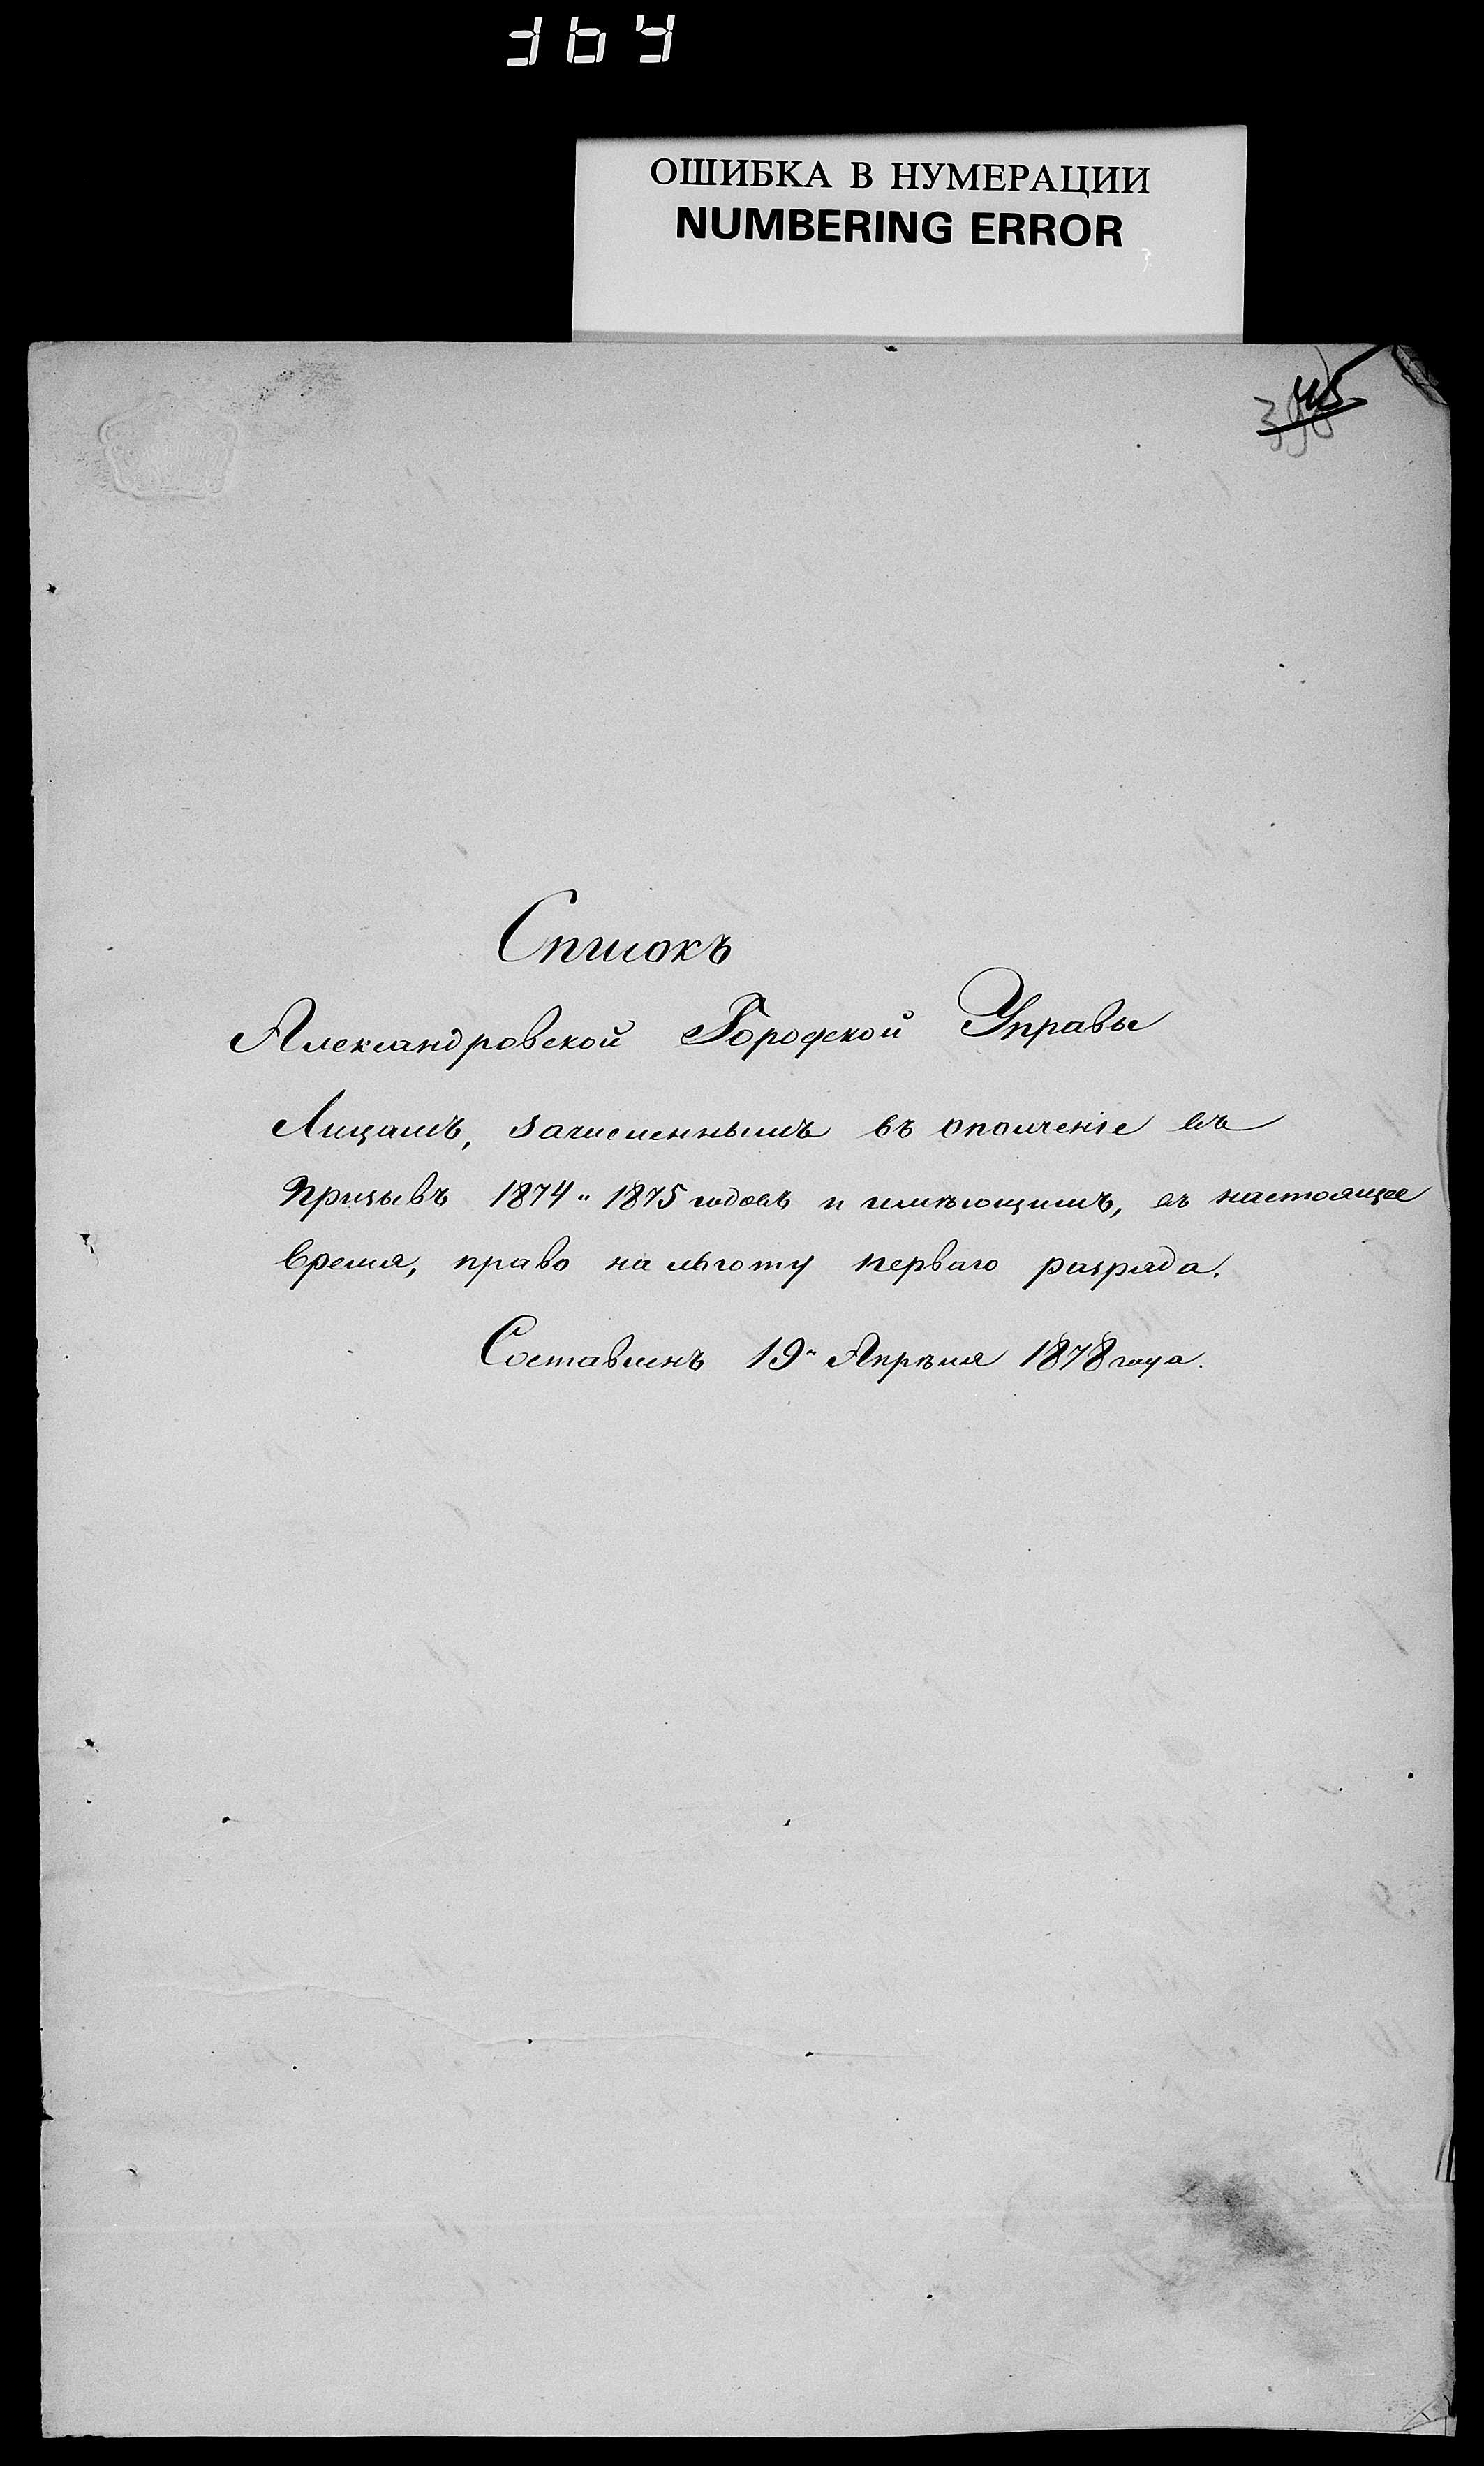 ОШИБКА В НУМЕРАЦИИ
NUMBERING ERROR
Списокъ
Александровской Городской Управы
Лицамъ, зачисленнымъ въ ополченіе въ
призывъ 1874 и 1875 годовъ и имѣющимъ, въ настоящее
время, право на льготу перваго разряда.
Составленъ 19го Апрѣля 1878 года.